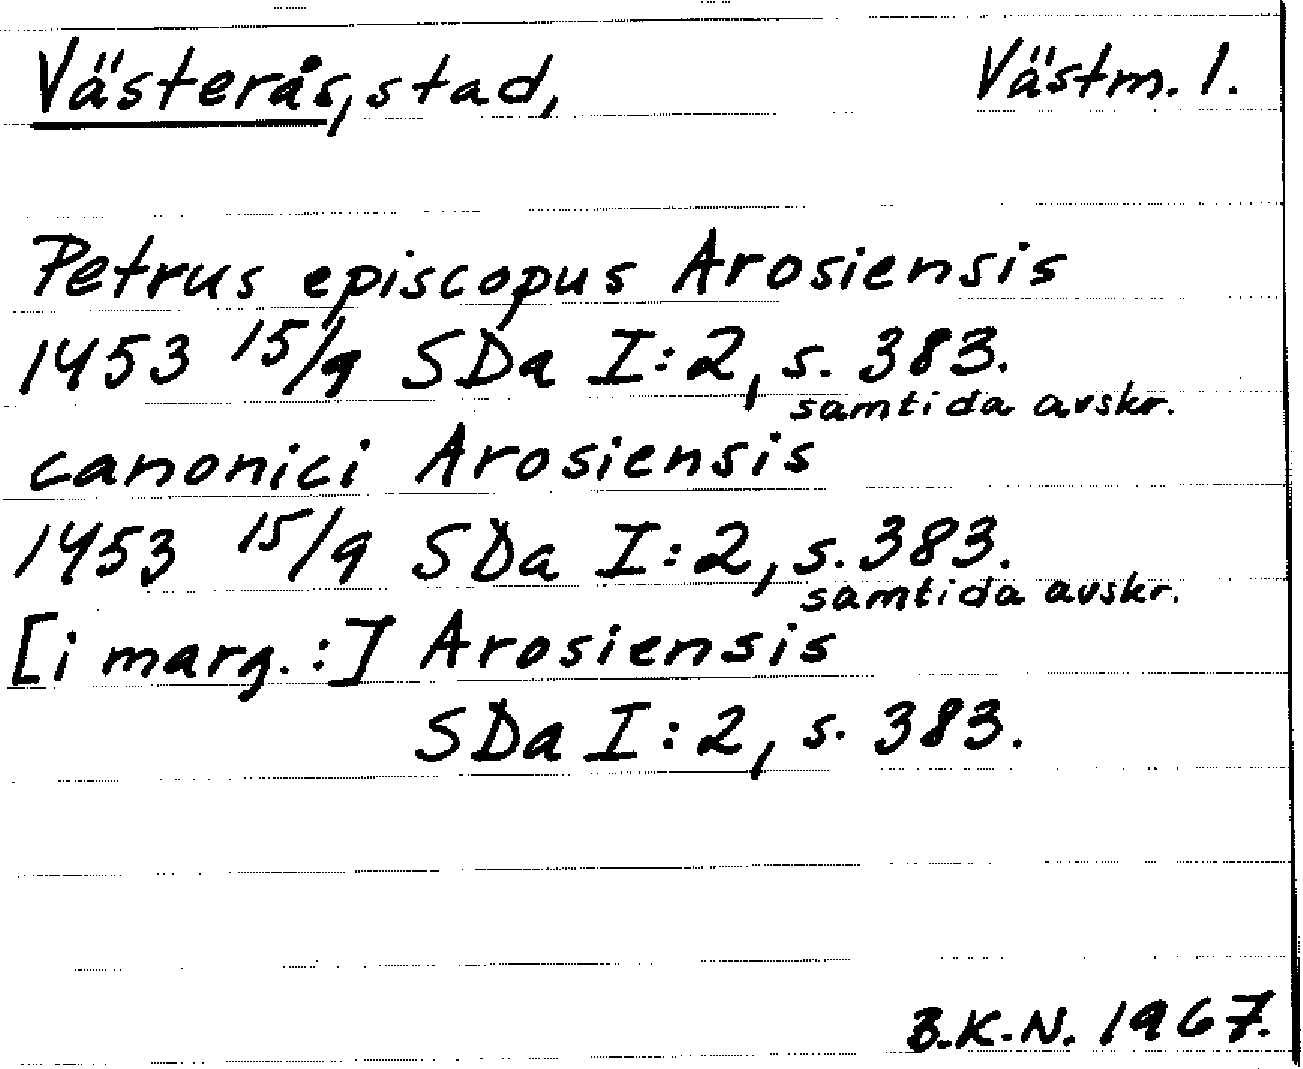 Västerås, stad, Västm. l.
Petrus episcopus Arosiensis
1453 15/9 SDa I:2, s. 383.
samtida avskr.
canonici Arosiensis
1453 15/9 SDa I:2, s. 383.
samtida avskr.
[i marg.:] Arosiensis
SDa I:2, s. 383.
B.K.N. 1967.